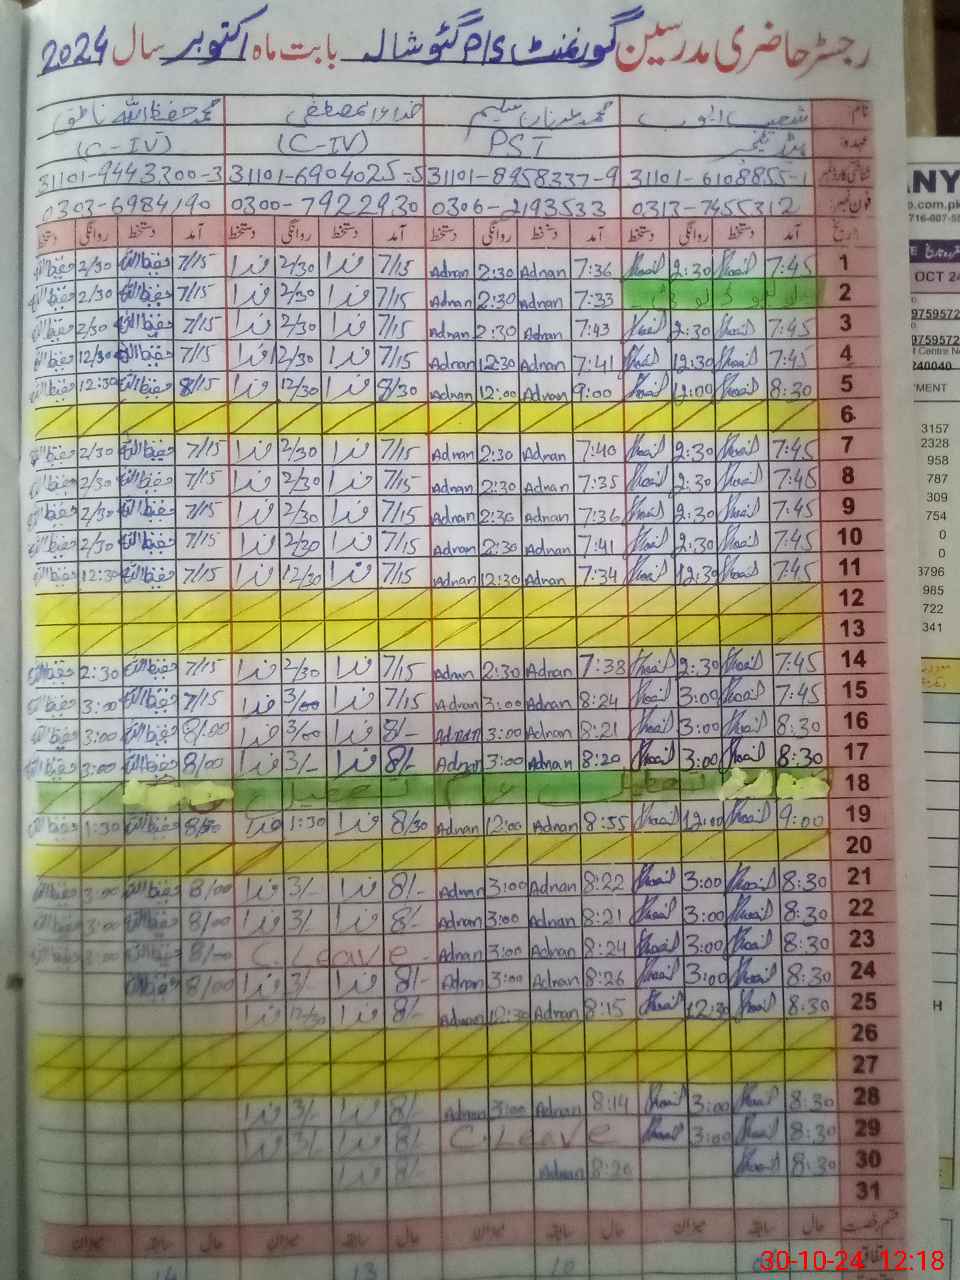 رجسٹر حاضری مدرسین گورنمنٹ P/S گٹو شالہ بابت ماہ اکتوبر سال 2024
نام: محمد حفیظ اللہ ناطق
عہدہ: ہیڈ ٹیچر PST (C-IV) (C-IV)
شناختی کارڈ نمبر 31101-6108855-1 31101-8958337-9 31101-6904025-5 31101-9443300-3
فون نمبر: 0313-7455312 0306-2193533 0300-7922930 0303-6984190
تاریخ آمد دستخط روانگی دستخط آمد دستخط روانگی دستخط آمد دستخط روانگی دستخط آمد دستخط روانگی دستخط
1 7:45 2:30 7:36 Adnan 2:30 Adnan 7/15 فدا 2/30 فدا 7/15 حفیظ اللہ 2/30 حفیظ اللہ
2 7:33 Adnan 2:30 Adnan 7/15 فدا 2/30 فدا 7/15 حفیظ اللہ 2/30 حفیظ اللہ
3 7:45 2:30 7:43 Adnan 2:30 Adnan 7/15 فدا 2/30 فدا 7/15 حفیظ اللہ 2/30 حفیظ اللہ
4 7:45 12:30 7:41 Adnan 12:30 Adnan 7/15 فدا 12/30 فدا 7/15 حفیظ اللہ 12/30 حفیظ اللہ
5 8:30 12:00 9:00 Adnan 12:00 Adnan 8/30 فدا 12/30 فدا 8/15 حفیظ اللہ 12:30 حفیظ اللہ
6
7 7:45 2:30 7:40 Adnan 2:30 Adnan 7/15 فدا 2/30 فدا 7/15 حفیظ اللہ 2/30 حفیظ اللہ
8 7:45 2:30 7:35 Adnan 2:30 Adnan 7/15 فدا 2/30 فدا 7/15 حفیظ اللہ 2/30 حفیظ اللہ
9 7:45 2:30 7:36 Adnan 2:30 Adnan 7/15 فدا 2/30 فدا 7/15 حفیظ اللہ 2/30 حفیظ اللہ
10 7:45 2:30 7:41 Adnan 2:30 Adnan 7/15 فدا 2/30 فدا 7/15 حفیظ اللہ 2/30 حفیظ اللہ
11 7:45 12:30 7:34 Adnan 12:30 Adnan 7/15 فدا 12/30 فدا 7/15 حفیظ اللہ 12:30 حفیظ اللہ
12
13
14 7:45 2:30 7:38 Adnan 2:30 Adnan 7/15 فدا 2/30 فدا 7/15 حفیظ اللہ 2:30 حفیظ اللہ
15 7:45 3:00 8:24 Adnan 3:00 Adnan 7/15 فدا 3/00 فدا 7/15 حفیظ اللہ 3:00 حفیظ اللہ
16 8:30 3:00 8:21 Adnan 3:00 Adnan 8/- فدا 3/00 فدا 8/00 حفیظ اللہ 3:00 حفیظ اللہ
17 8:30 3:00 8:20 Adnan 3:00 Adnan 8/- فدا 3/- فدا 8/00 حفیظ اللہ 3:00 حفیظ اللہ
18
19 9:00 12:00 8:55 Adnan 12:00 Adnan 8/30 فدا 1:30 فدا 8/30 حفیظ اللہ 1:30 حفیظ اللہ
20
21 8:30 3:00 8:22 Adnan 3:00 Adnan 8/- فدا 3/- فدا 8/00 حفیظ اللہ 3:00 حفیظ اللہ
22 8:30 3:00 8:21 Adnan 3:00 Adnan 8/- فدا 3/- فدا 8/00 حفیظ اللہ 3:00 حفیظ اللہ
23 8:30 3:00 8:24 Adnan 3:00 Adnan C. Leave 8/00 حفیظ اللہ 3:00 حفیظ اللہ
24 8:30 3:00 8:26 Adnan 3:00 Adnan 8/- فدا 3/- فدا 8/00 حفیظ اللہ
25 8:30 12:30 8:15 Adnan 12:30 Adnan 8/- فدا 12/30 فدا
26
27
28 8:30 3:00 8:14 Adnan 3:00 Adnan 8/- فدا 3/- فدا
29 8:30 3:00 C. Leave 8/- فدا 3/- فدا
30 8:30 8:20 Adnan 8/- فدا
31
قسم رخصت حال سابقہ میزان حال سابقہ میزان حال سابقہ میزان حال سابقہ میزان
13
ANY
OCT 24
9759572
9759572
240040
MENT
3157
2328
958
787
309
754
0
0
3796
985
722
341
30-10-24 12:18